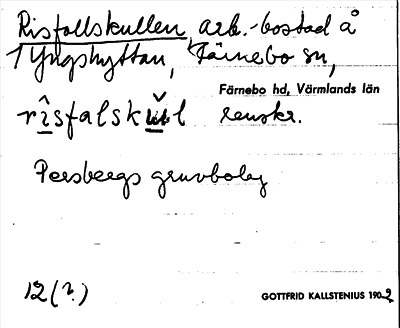 Risfallskullen, arb.-bostad å
Yngshyttan, Färnebo sn,
Färnebo hd, Värmlands län
risfalskul renskr.
Persbergs gruvbolag
12 (?)
GOTTFRID KALLSTENIUS 1902